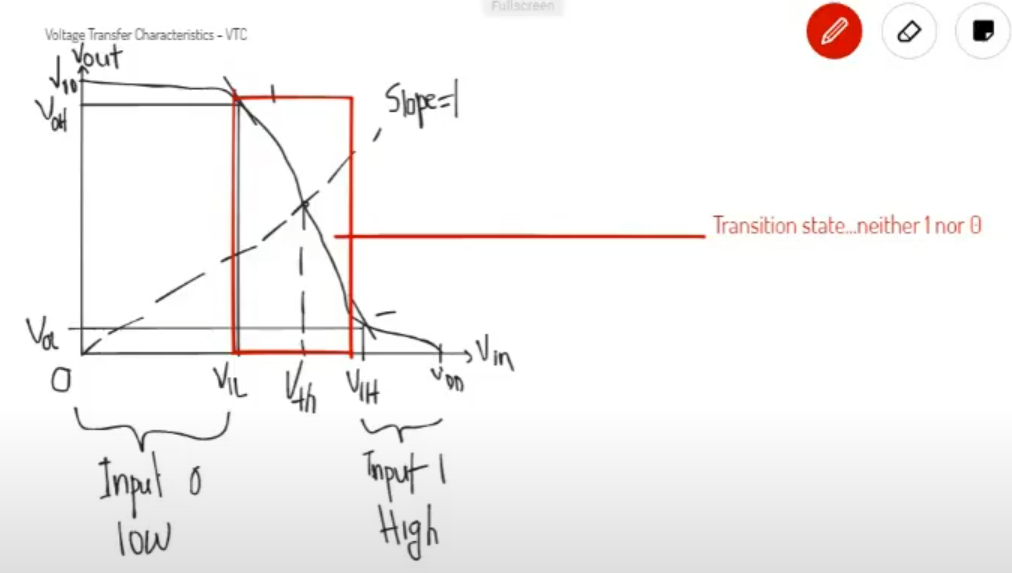 Fullscreen
Voltage Transfer Characteristics - VTC
Vout
VDD
VOH
Slope=1
Transition state...neither 1 nor 0
VOL
Vin
0
VIL
Vth
VIH
VDD
Input 0
low
Input 1
High